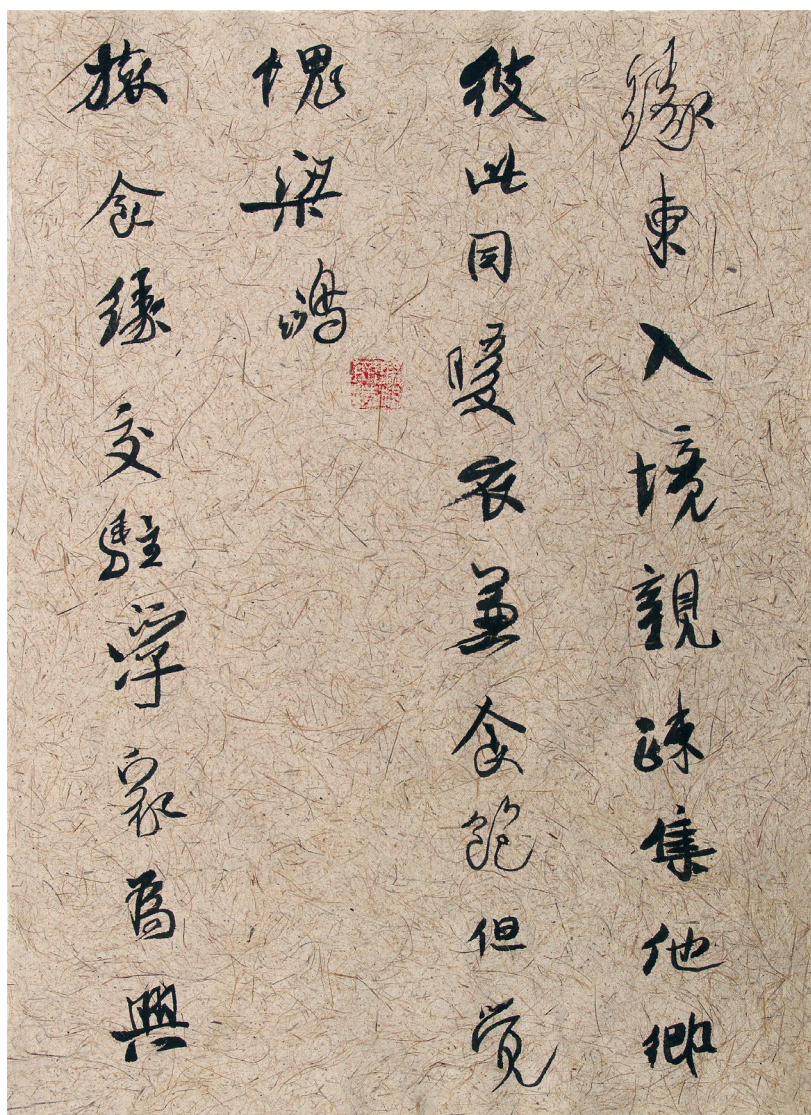 緣東入境親疎集他鄉
彼此同暖衣兼食飽但覺
愧梁鴻
旅食緣交駐浮家爲興